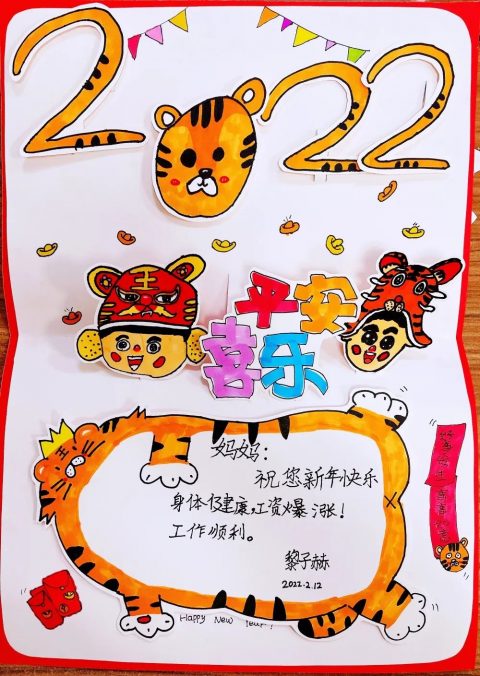 2022
王
平安
喜乐
妈妈：
祝您新年快乐
身体健康，工资爆涨！
工作顺利。
黎子赫
2022.2.12
Happy New Year!